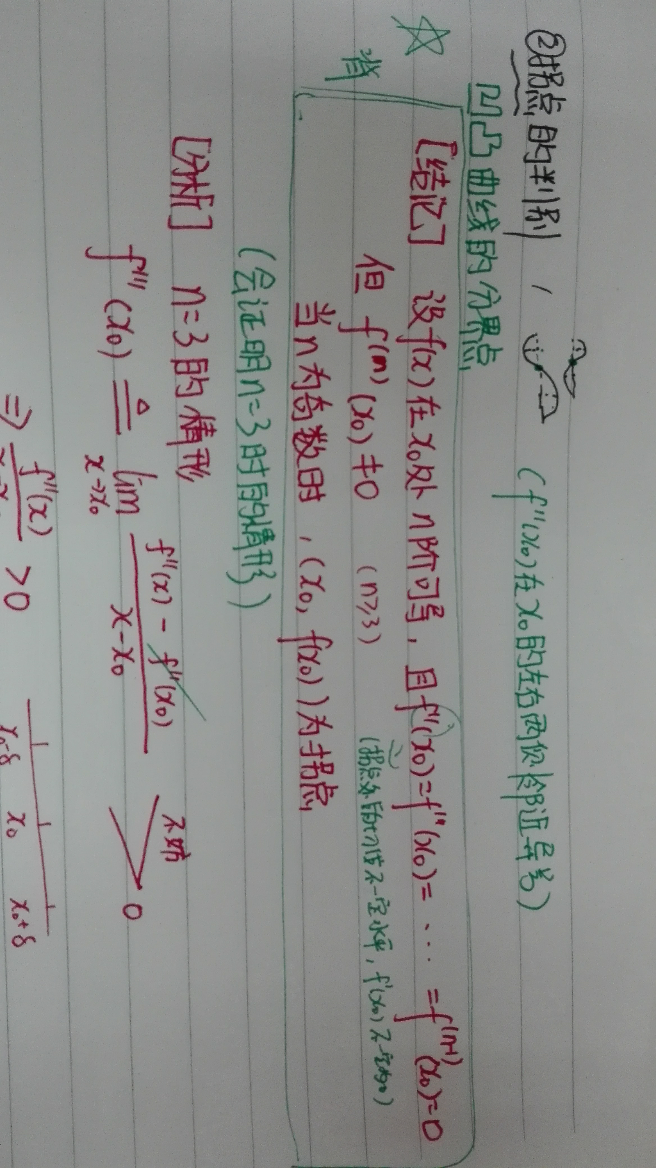 ②拐点的判别,
(f''(x₀)在x₀的左右两侧邻近异号)
凹凸曲线的分界点
☆ 背
[结论] 设f(x)在x₀处n阶可导,且f''(x₀)=f'''(x₀)=…=f⁽ⁿ⁻¹⁾(x₀)=0
(拐点处的切线不一定水平,f'(x₀)不一定为0)
但 f⁽ⁿ⁾(x₀)≠0 (n≥3)
当n为奇数时,(x₀, f(x₀))为拐点
(会证明n=3时的情形)
[分析] n=3的情形
f'''(x₀) ≜ lim x→x₀ (f''(x) - f''(x₀))/(x-x₀) 不妨 > 0
⇒ f''(x) > 0
x₀-δ x₀ x₀+δ